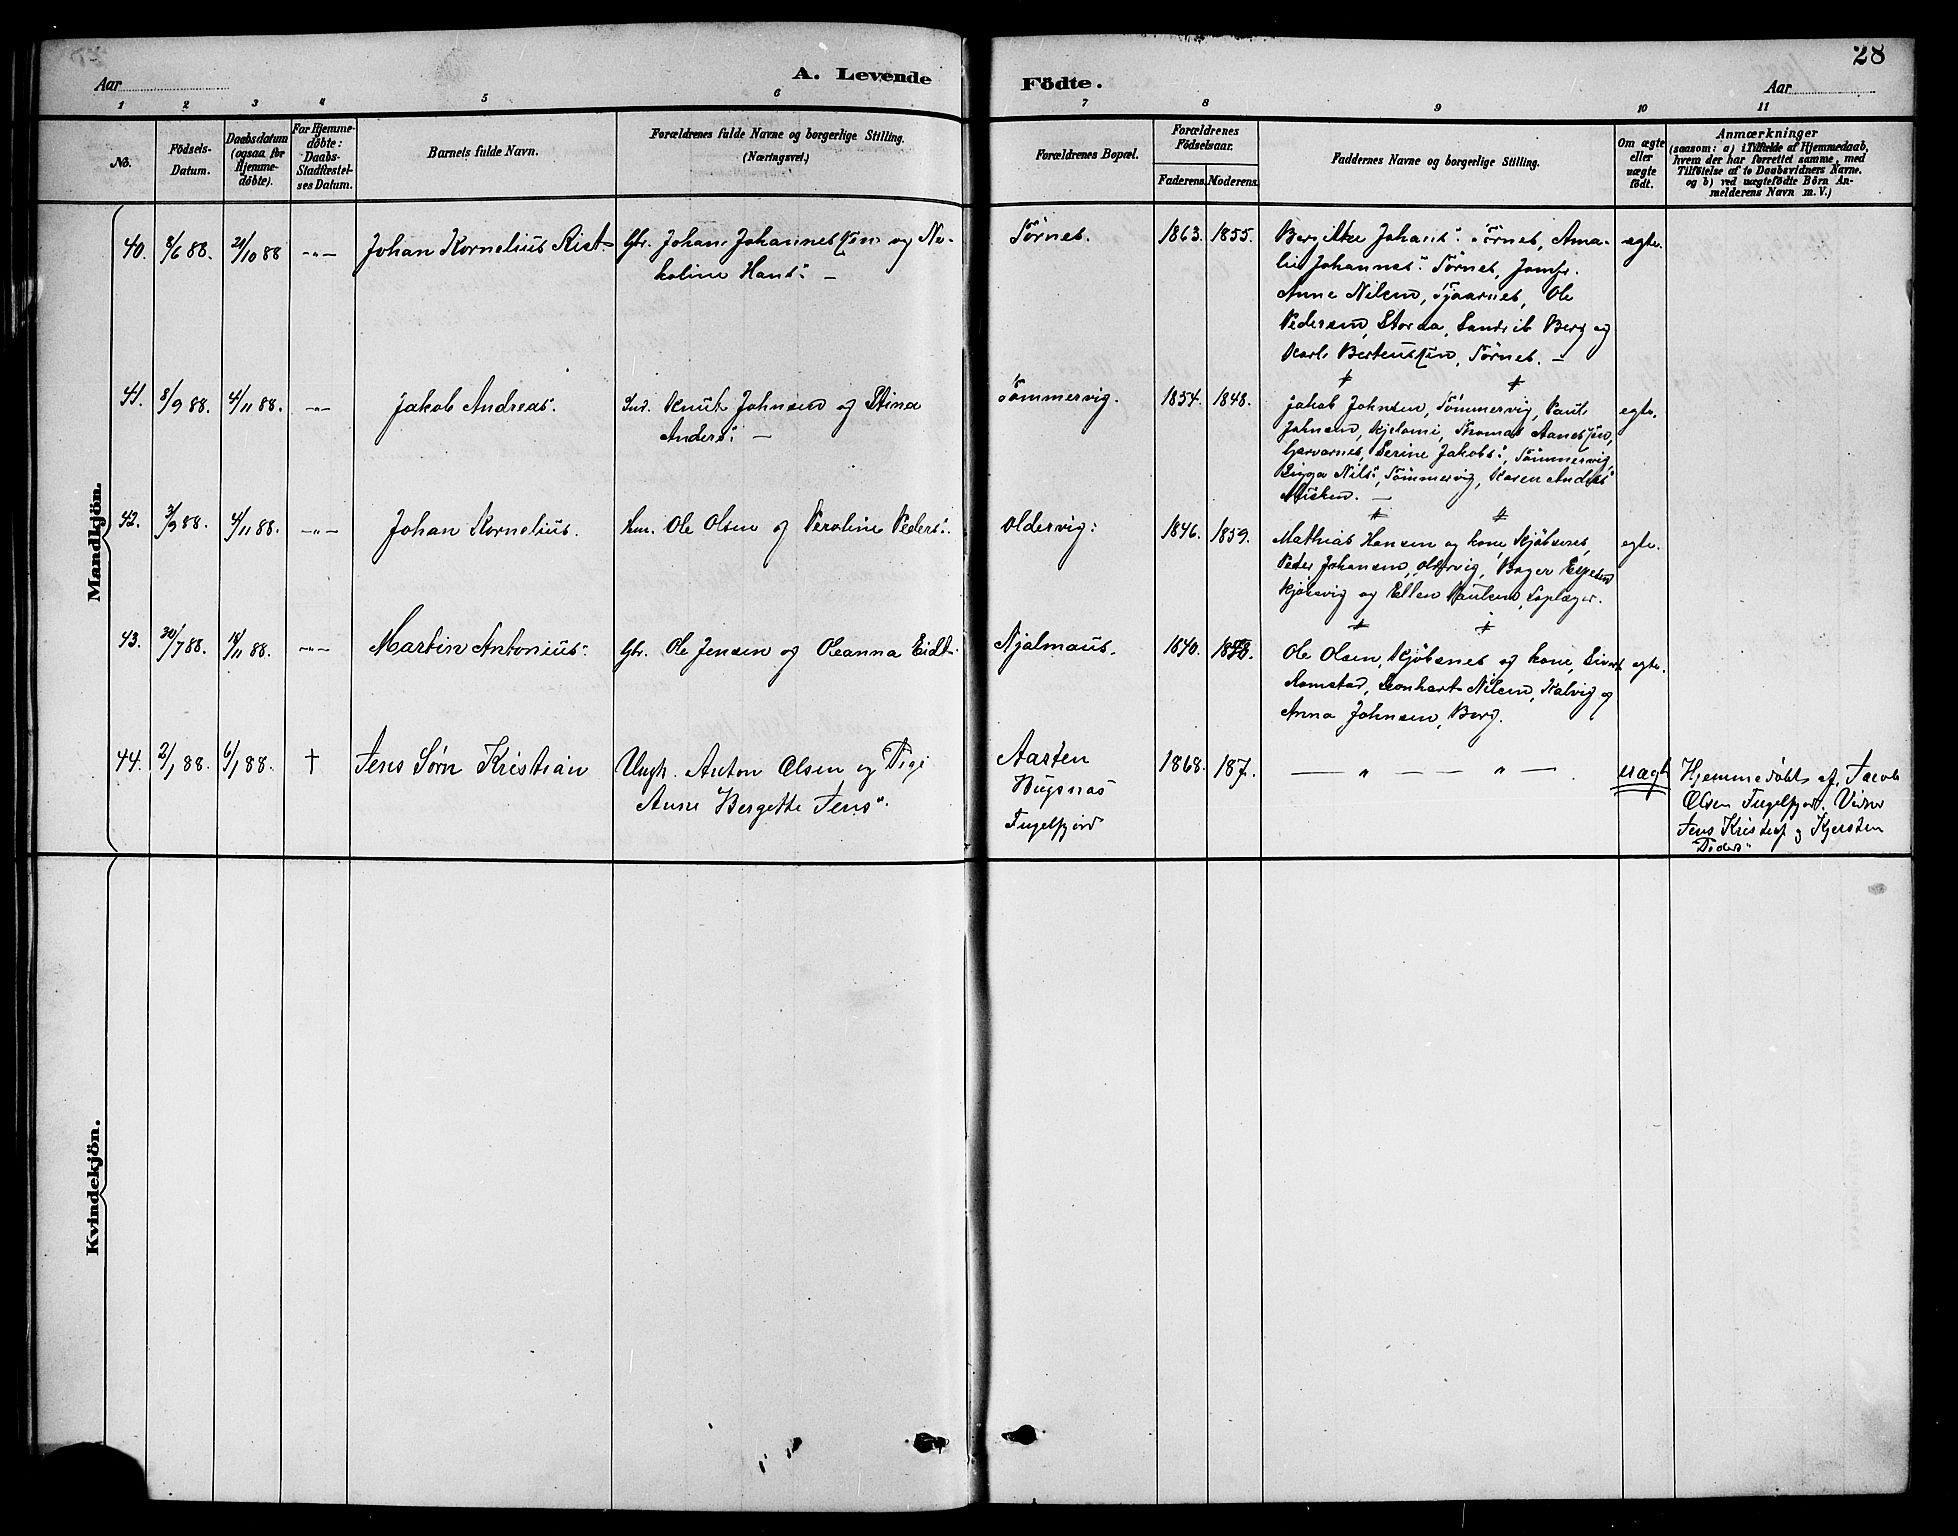 28
Aar
A. Levende
Födte.
Aar
1 2 3 4 5 6 7 8 9 10 11
No.
Födsels-
Datum.
Daabsdatum
(ogsaa for
Hjemme-
døbte).
For Hjemme-
døbte:
Daabs-
Stadfæstel-
ses Datum.
Barnets fulde Navn.
Forældrenes fulde Navne og borgerlige Stilling.
(Næringsvei.)
Forældrenes Bopæl.
Forældrenes
Fødselsaar.
Faderens. Moderens.
Faddernes Navne og borgerlige Stilling.
Om ægte
eller
uægte
født.
Anmærkninger
(saasom: a) i Tilfælde af Hjemmedaab,
hvem der har forrettet samme, med
Tilføielse af to Daabsvidners Navne.
og b) ved uægtefødte Börn An-
melderens Navn m. V.)
Mandkjön.
40. 8/6 88. 21/10 88 -"- Johan Kornelius Rist- Gbr. Johan Johannessen og No-
koline Hans" -
Tørnes. 1863. 1855.
Bergitte Johans" Tørnes, Ama-
lie Johannes" Tørnes, Jomfr.
Anne Nilsen, Tjaarnes, Ole
Pedersen, Storaa, Sandrib Berg og
Karl Berteussen, Tørnes. -
egte.
41. 8/9 88. 4/11 88. -"- Jakob Andreas. Ind. Knut Johnsen og Stina
Anders" -
Tømmervig. 1854. 1848.
Jakob Johnsen, Tømmervig, Paul
Johnsen, Kjelomi, Thomas Aanessen,
Garvarnes, Serine Jakobs", Tømmervig,
Sigga Nils", Tømmervig, Karen Anders"
Misken. -
egte.
42. 3/9 88. 4/11 88. -"- Johan Kornelius. Hm. Ole Olsen og Peroline Peders".
Oldervig: 1846. 1859.
Mathias Hansen og kone Kjøbsnes,
Peder Johansen, Oldervig, Birger Espesen
Kjøbsvig og Ellen Paulsen, Sopløger.
egte.
43. 30/7 88. 18/11 88. -"- Martin Antonius. Gbr. Ole Jensen og Oleanna Eidt-
Njalmaus. 1840.
Ole Olsen, Kjøbsnes og kone, Sivert
Romstad, Leonhart Nilsen, Kalvig og
Anna Johnsen, Berg.
egte.
44. 2/1 88. 6/1 88. † Jens Sørn Kristian Ungk. Anton Olsen og Pige
Anne Bergette Jens".
Aasten
Bugsnæs
Tugelfjord
1868. 187. — " — — " — .
uægt
Hjemmedøbt af Jacob
Olsen Tugelfjord. Vidner
Jens Kristof og Kjersten
Peders"
Kvindekjön.